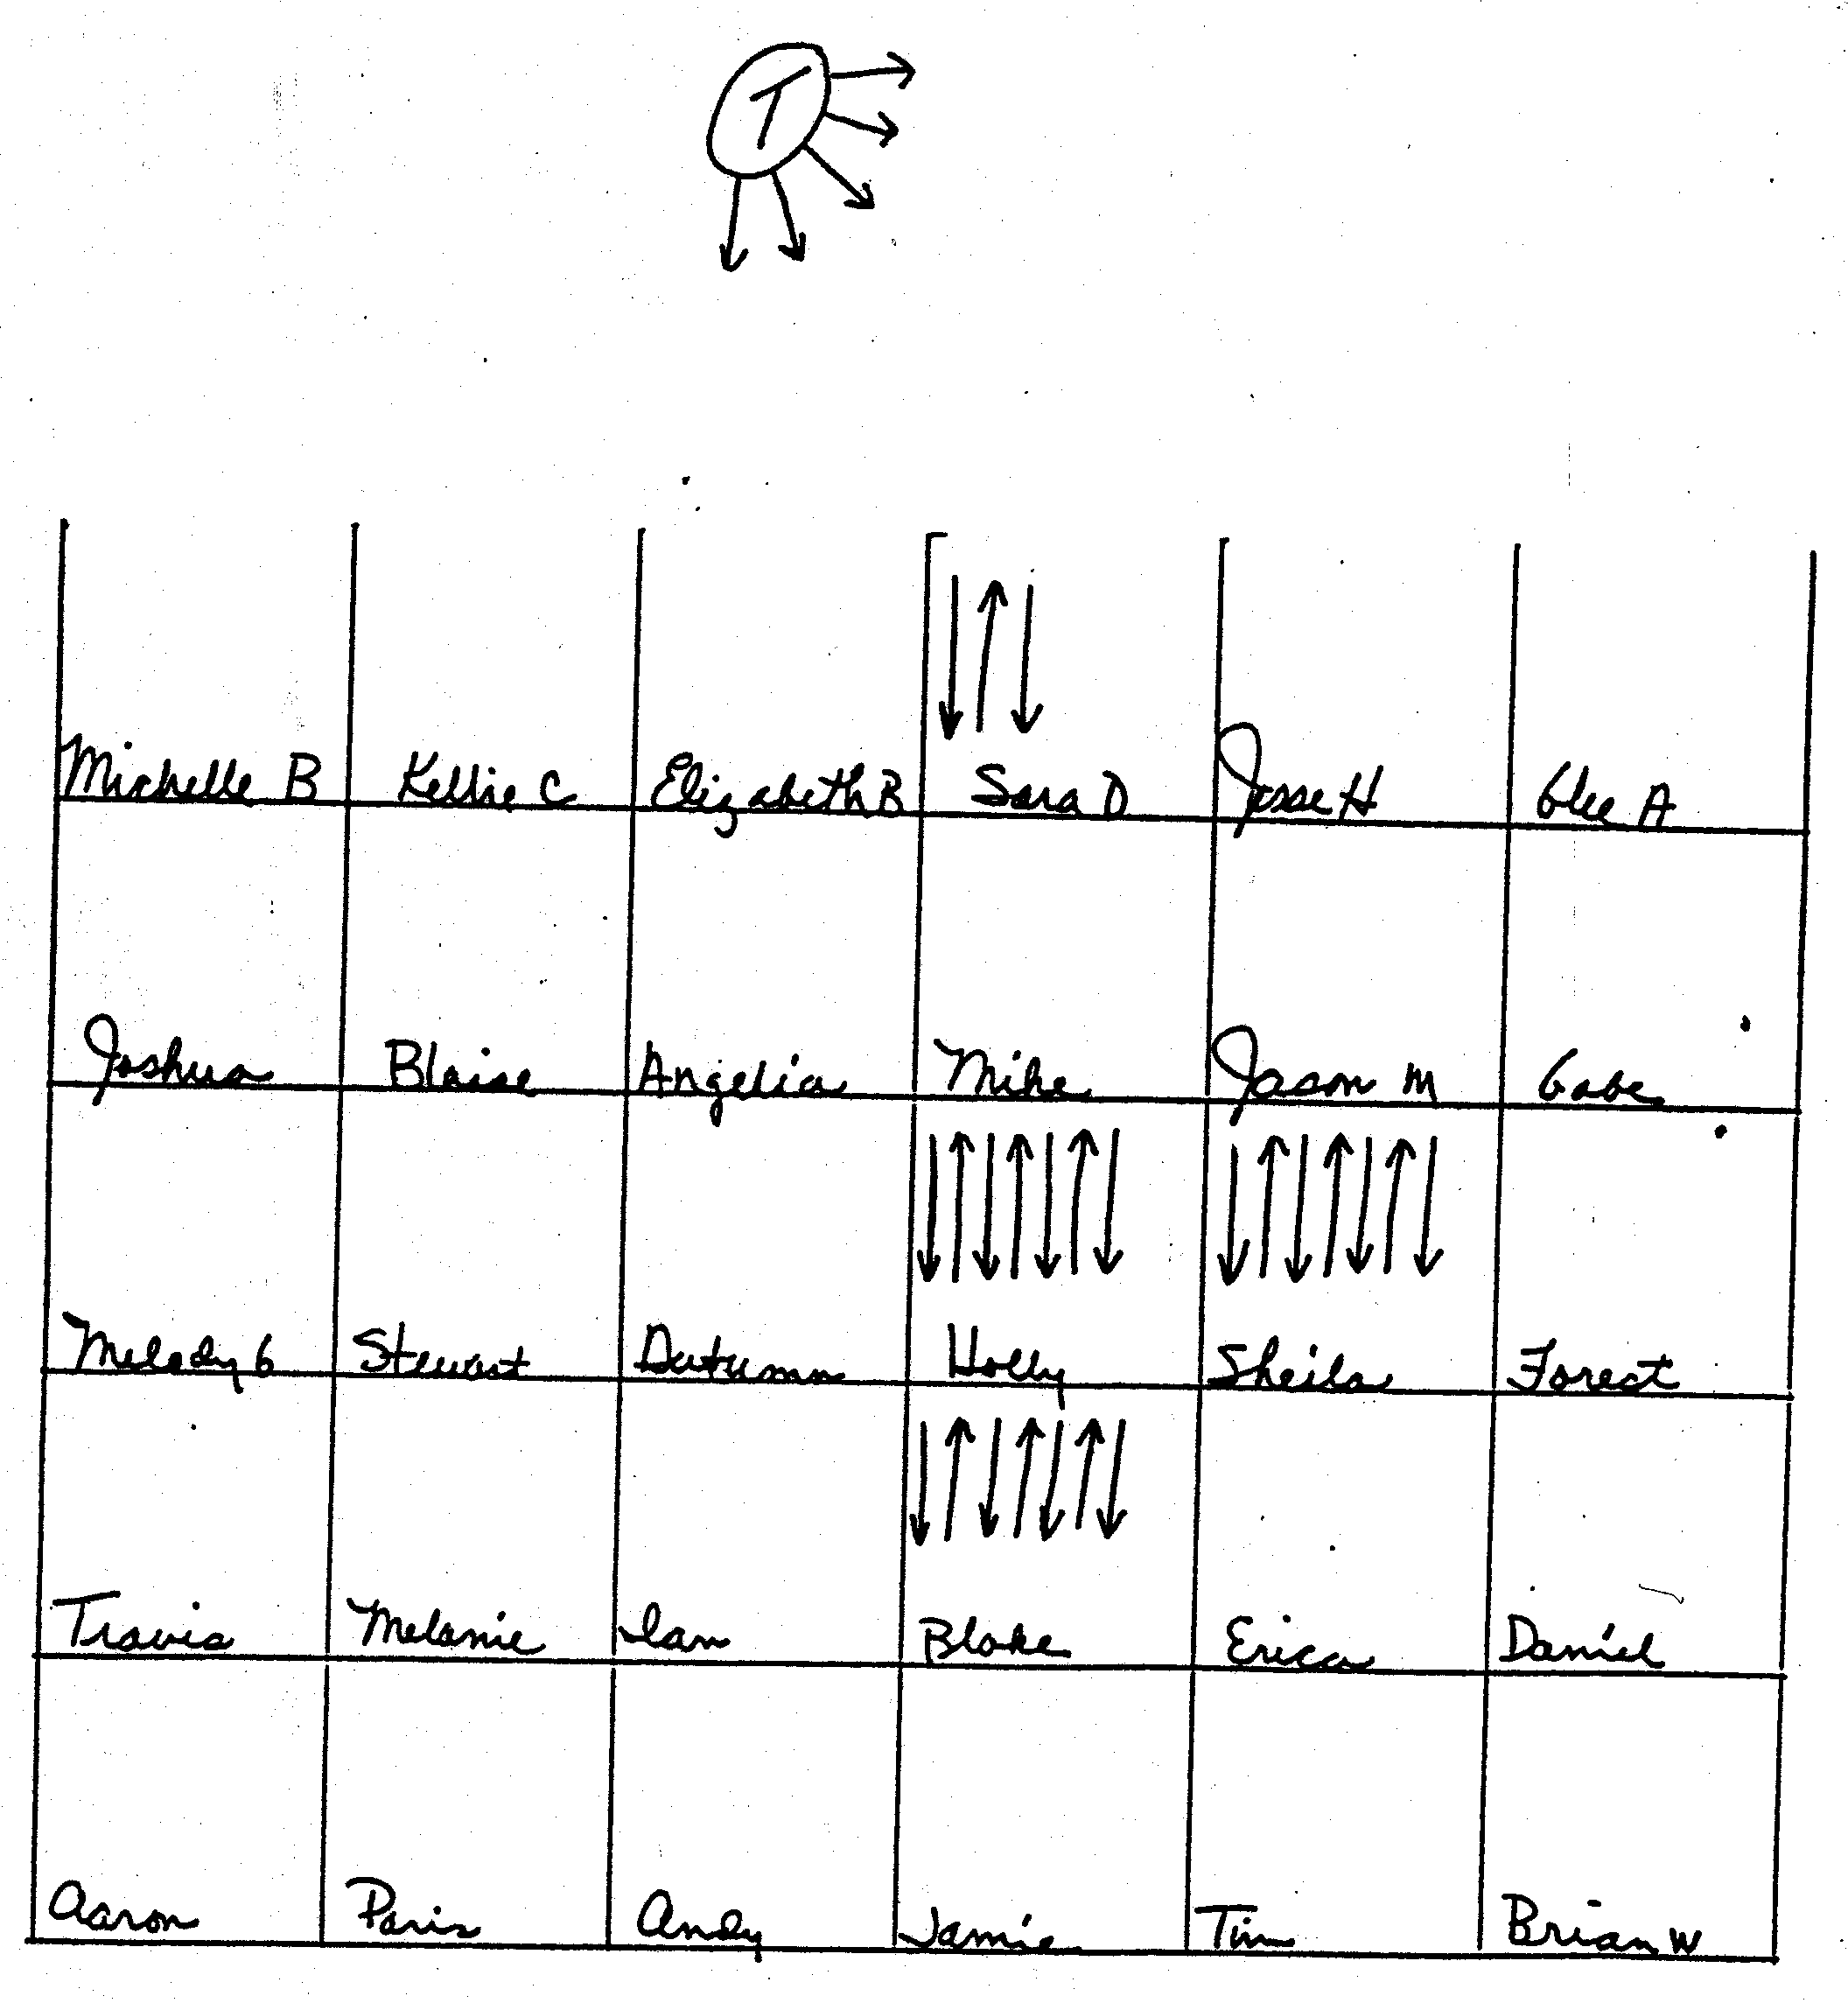 T
Michelle B Kellie C Elizabeth B Sara D Jesse H Glee A
Joshua Blaise Angelia Mike Jason M Gabe
Melody G Stewart Autumn Holly Sheila Forest
Travis Melanie Ian Blake Erica Daniel
Aaron Paris Andy Jamie Tim Brian W